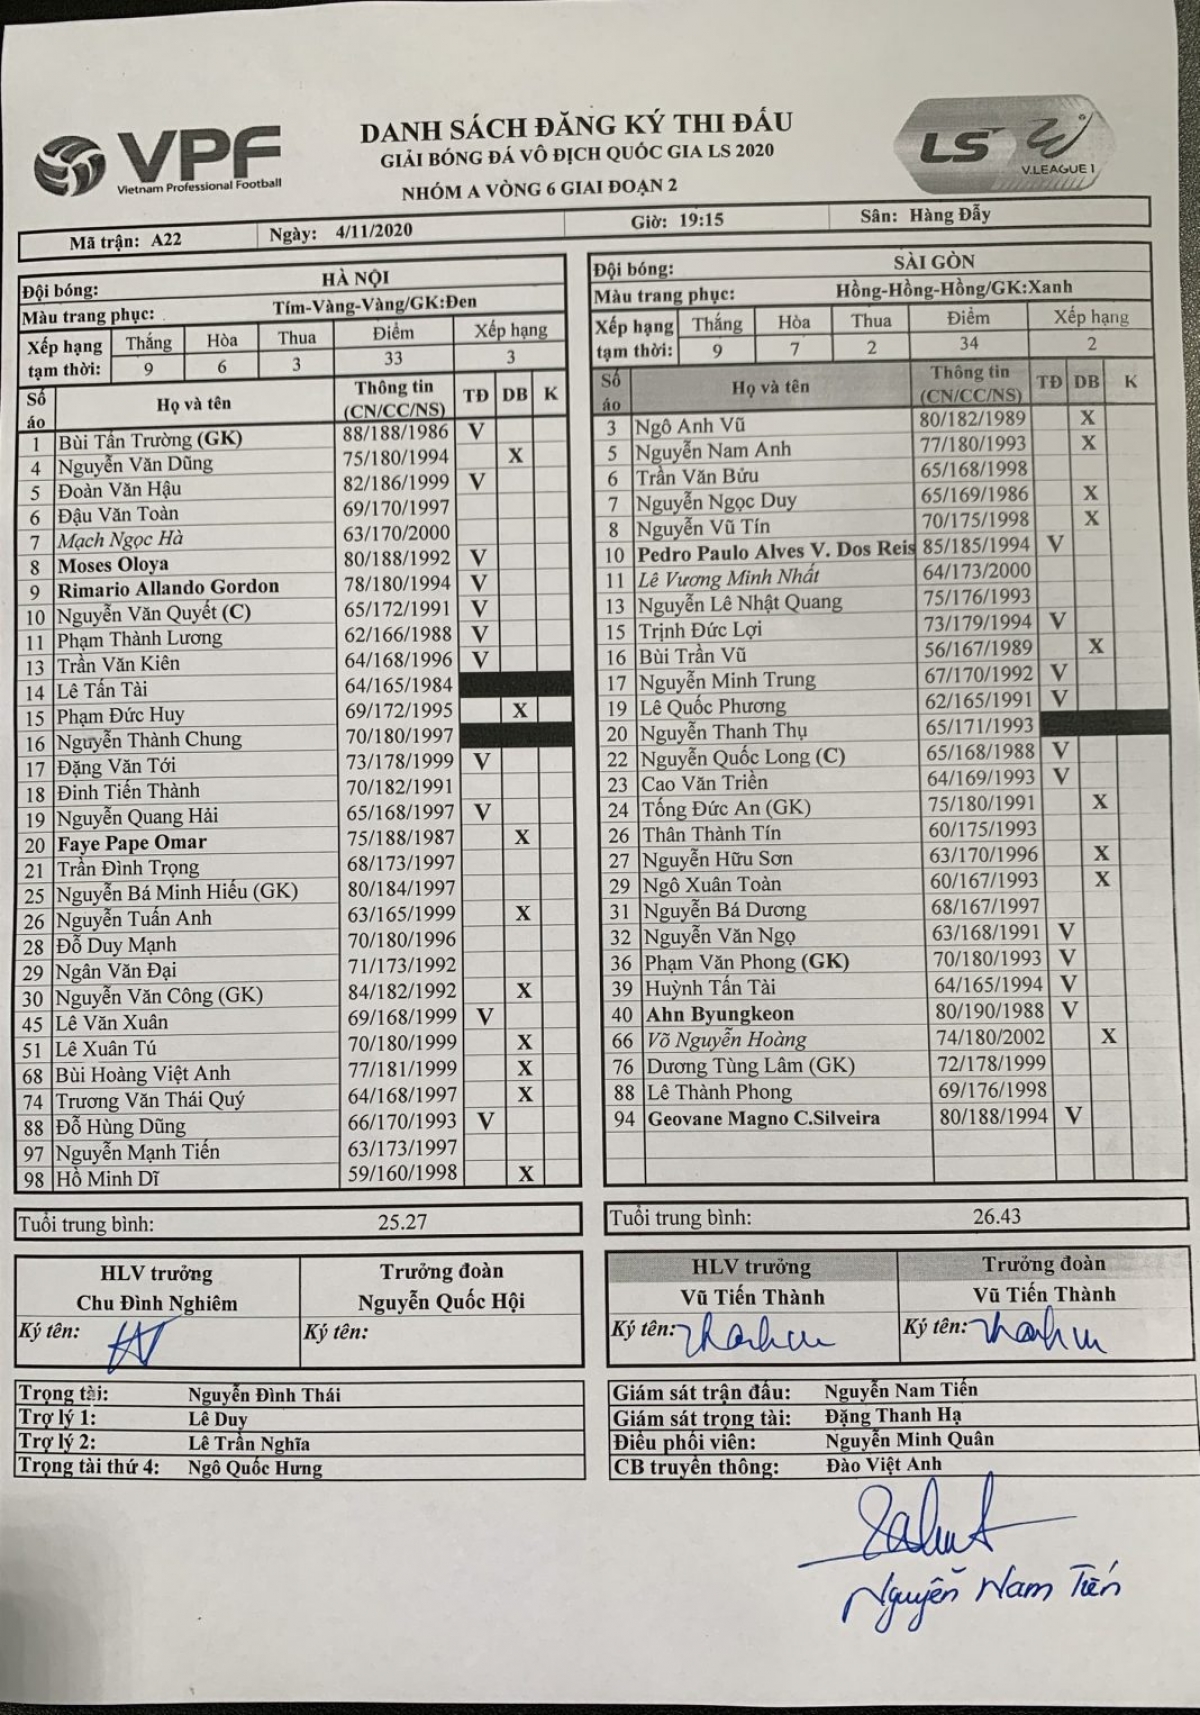 VPF
Vietnam Professional Football
DANH SÁCH ĐĂNG KÝ THI ĐẤU
GIẢI BÓNG ĐÁ VÔ ĐỊCH QUỐC GIA LS 2020
NHÓM A VÒNG 6 GIAI ĐOẠN 2
LS V.LEAGUE 1
Mã trận: A22 Ngày: 4/11/2020 Giờ: 19:15 Sân: Hàng Đẫy
Đội bóng: HÀ NỘI
Màu trang phục: Tím-Vàng-Vàng/GK:Đen
Xếp hạng tạm thời: Thắng Hòa Thua Điểm Xếp hạng
9 6 3 33 3
Số áo Họ và tên Thông tin (CN/CC/NS) TĐ DB K
1 Bùi Tấn Trường (GK) 88/188/1986 V
4 Nguyễn Văn Dũng 75/180/1994 X
5 Đoàn Văn Hậu 82/186/1999 V
6 Đậu Văn Toàn 69/170/1997
7 Mạch Ngọc Hà 63/170/2000
8 Moses Oloya 80/188/1992 V
9 Rimario Allando Gordon 78/180/1994 V
10 Nguyễn Văn Quyết (C) 65/172/1991 V
11 Phạm Thành Lương 62/166/1988 V
13 Trần Văn Kiên 64/168/1996 V
14 Lê Tấn Tài 64/165/1984
15 Phạm Đức Huy 69/172/1995 X
16 Nguyễn Thành Chung 70/180/1997
17 Đặng Văn Tới 73/178/1999 V
18 Đinh Tiến Thành 70/182/1991
19 Nguyễn Quang Hải 65/168/1997 V
20 Faye Pape Omar 75/188/1987 X
21 Trần Đình Trọng 68/173/1997
25 Nguyễn Bá Minh Hiếu (GK) 80/184/1997
26 Nguyễn Tuấn Anh 63/165/1999 X
28 Đỗ Duy Mạnh 70/180/1996
29 Ngân Văn Đại 71/173/1992
30 Nguyễn Văn Công (GK) 84/182/1992 X
45 Lê Văn Xuân 69/168/1999 V
51 Lê Xuân Tú 70/180/1999 X
68 Bùi Hoàng Việt Anh 77/181/1999 X
74 Trương Văn Thái Quý 64/168/1997 X
88 Đỗ Hùng Dũng 66/170/1993 V
97 Nguyễn Mạnh Tiến 63/173/1997
98 Hồ Minh Dĩ 59/160/1998 X
Tuổi trung bình: 25.27
HLV trưởng Trưởng đoàn
Chu Đình Nghiêm Nguyễn Quốc Hội
Ký tên: Ký tên:
Trọng tài: Nguyễn Đình Thái
Trợ lý 1: Lê Duy
Trợ lý 2: Lê Trần Nghĩa
Trọng tài thứ 4: Ngô Quốc Hưng
Đội bóng: SÀI GÒN
Màu trang phục: Hồng-Hồng-Hồng/GK:Xanh
Xếp hạng tạm thời: Thắng Hòa Thua Điểm Xếp hạng
9 7 2 34 2
Số áo Họ và tên Thông tin (CN/CC/NS) TĐ DB K
3 Ngô Anh Vũ 80/182/1989 X
5 Nguyễn Nam Anh 77/180/1993 X
6 Trần Văn Bửu 65/168/1998
7 Nguyễn Ngọc Duy 65/169/1986 X
8 Nguyễn Vũ Tín 70/175/1998 X
10 Pedro Paulo Alves V. Dos Reis 85/185/1994 V
11 Lê Vương Minh Nhất 64/173/2000
13 Nguyễn Lê Nhật Quang 75/176/1993
15 Trịnh Đức Lợi 73/179/1994 V
16 Bùi Trần Vũ 56/167/1989 X
17 Nguyễn Minh Trung 67/170/1992 V
19 Lê Quốc Phương 62/165/1991 V
20 Nguyễn Thanh Thụ 65/171/1993
22 Nguyễn Quốc Long (C) 65/168/1988 V
23 Cao Văn Triền 64/169/1993 V
24 Tống Đức An (GK) 75/180/1991 X
26 Thân Thành Tín 60/175/1993
27 Nguyễn Hữu Sơn 63/170/1996 X
29 Ngô Xuân Toàn 60/167/1993 X
31 Nguyễn Bá Dương 68/167/1997
32 Nguyễn Văn Ngọ 63/168/1991 V
36 Phạm Văn Phong (GK) 70/180/1993 V
39 Huỳnh Tấn Tài 64/165/1994 V
40 Ahn Byungkeon 80/190/1988 V
66 Võ Nguyễn Hoàng 74/180/2002 X
76 Dương Tùng Lâm (GK) 72/178/1999
88 Lê Thành Phong 69/176/1998
94 Geovane Magno C.Silveira 80/188/1994 V
Tuổi trung bình: 26.43
HLV trưởng Trưởng đoàn
Vũ Tiến Thành Vũ Tiến Thành
Ký tên: Ký tên:
Giám sát trận đấu: Nguyễn Nam Tiến
Giám sát trọng tài: Đặng Thanh Hạ
Điều phối viên: Nguyễn Minh Quân
CB truyền thông: Đào Việt Anh
Nguyễn Nam Tiến